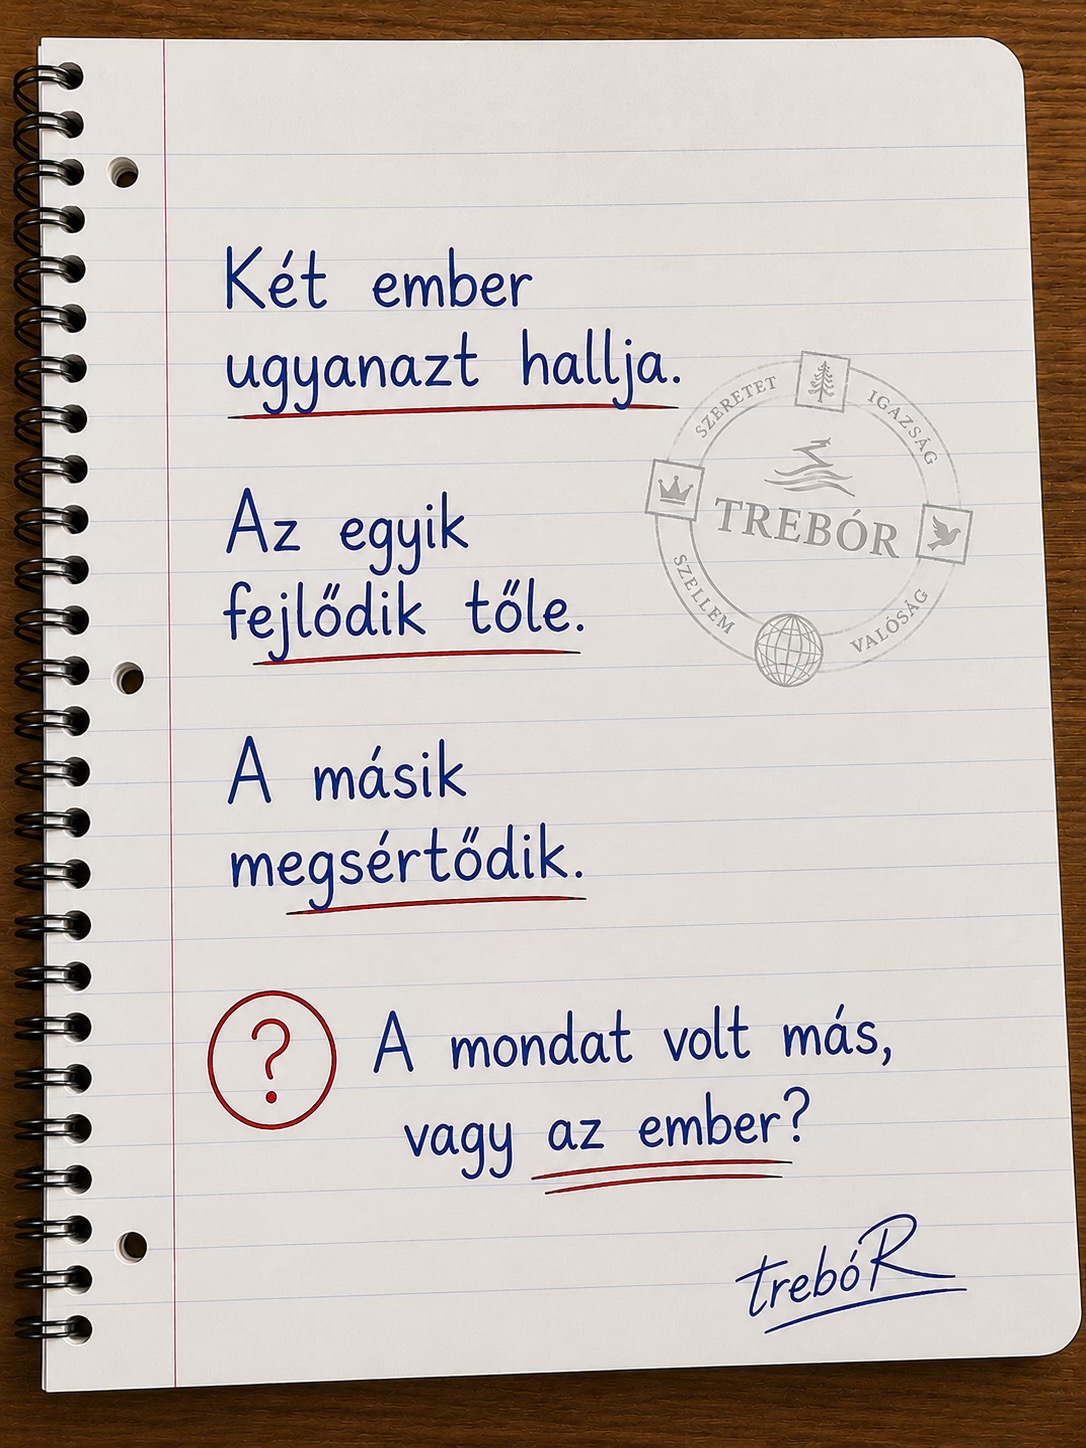 Két ember
ugyanazt hallja.
SZERETET
IGAZSÁG
TREBÓR
SZELLEM
VALÓSÁG
Az egyik
fejlődik tőle.
A másik
megsértődik.
?
A mondat volt más,
vagy az ember?
trebóR